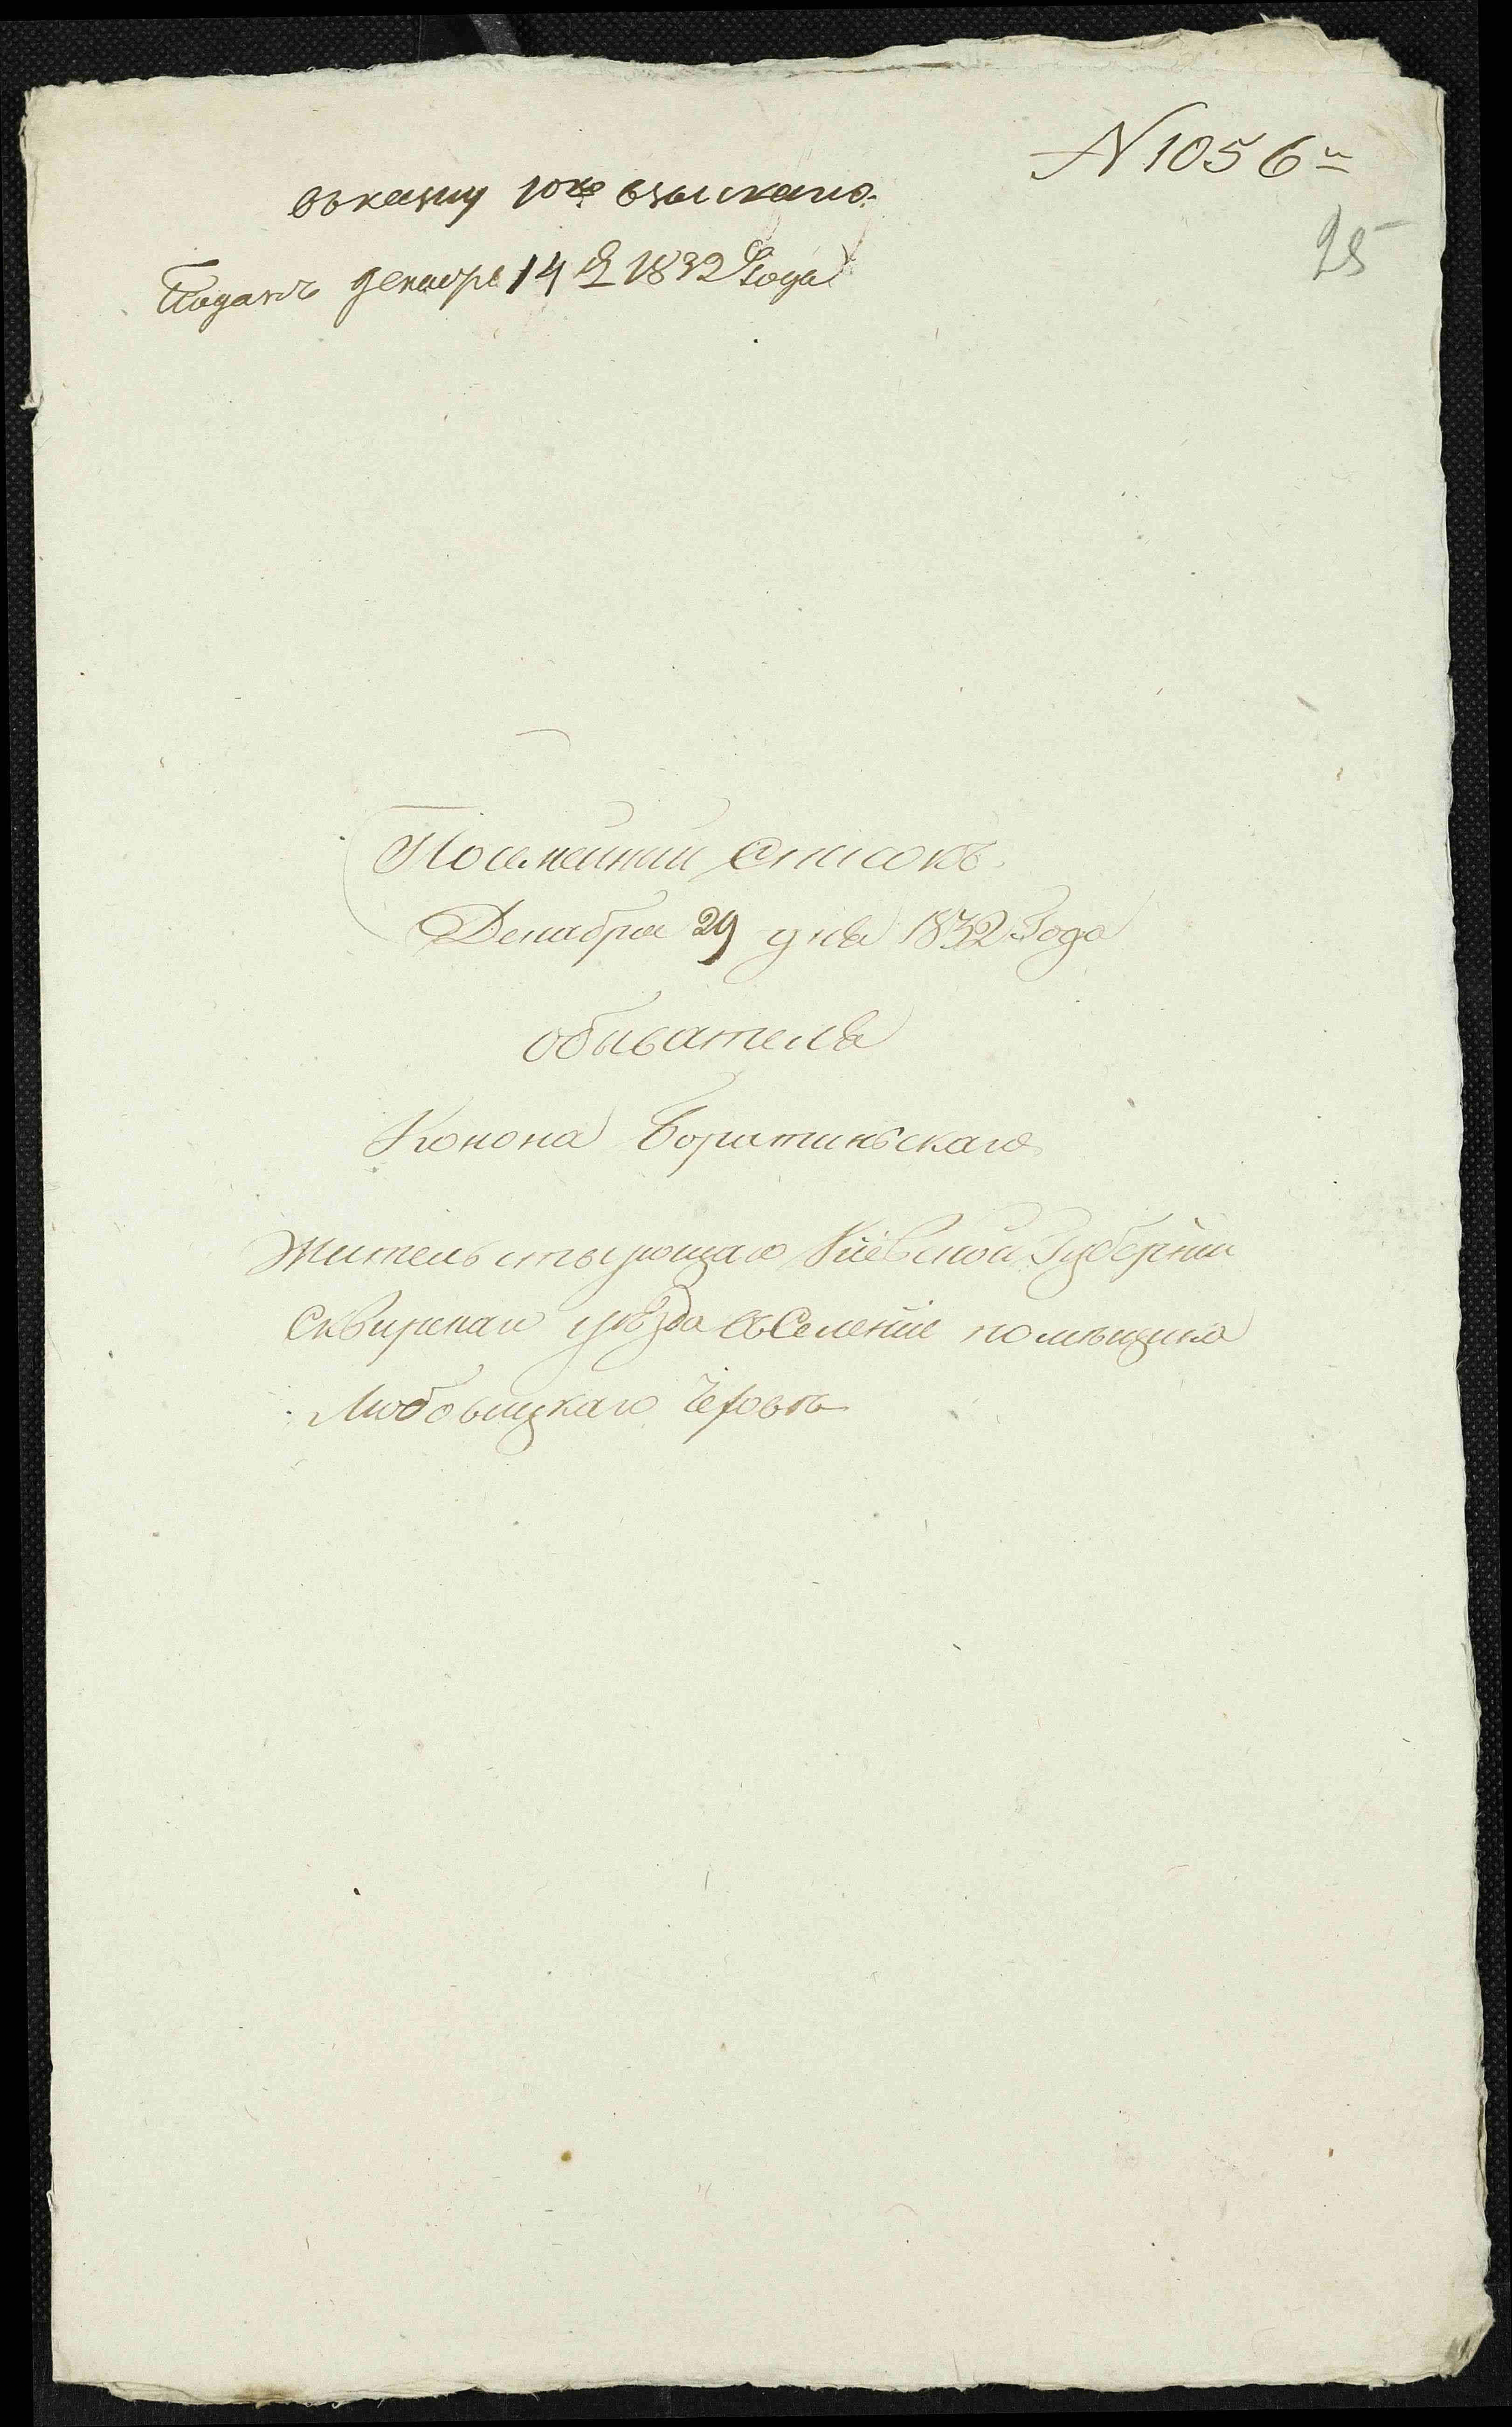 N 1056й
въ казну 10 ко взыскано.
25
Поданъ декабря 14 д 1832 Года
Посемейний Списокъ
Декабря 29 дня 1832 Года
обывателя
Конона Боратинскаго
жительствующаго Кіевской Губерніи
Сквирскаго уѣзда въ Селеніи помѣщика
Любовицкаго